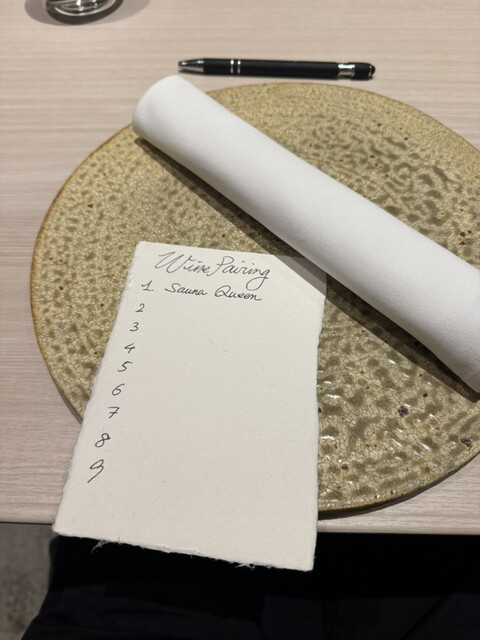 Wine Pairing
1 Sauna Queen
2
3
4
5
6
7
8
9